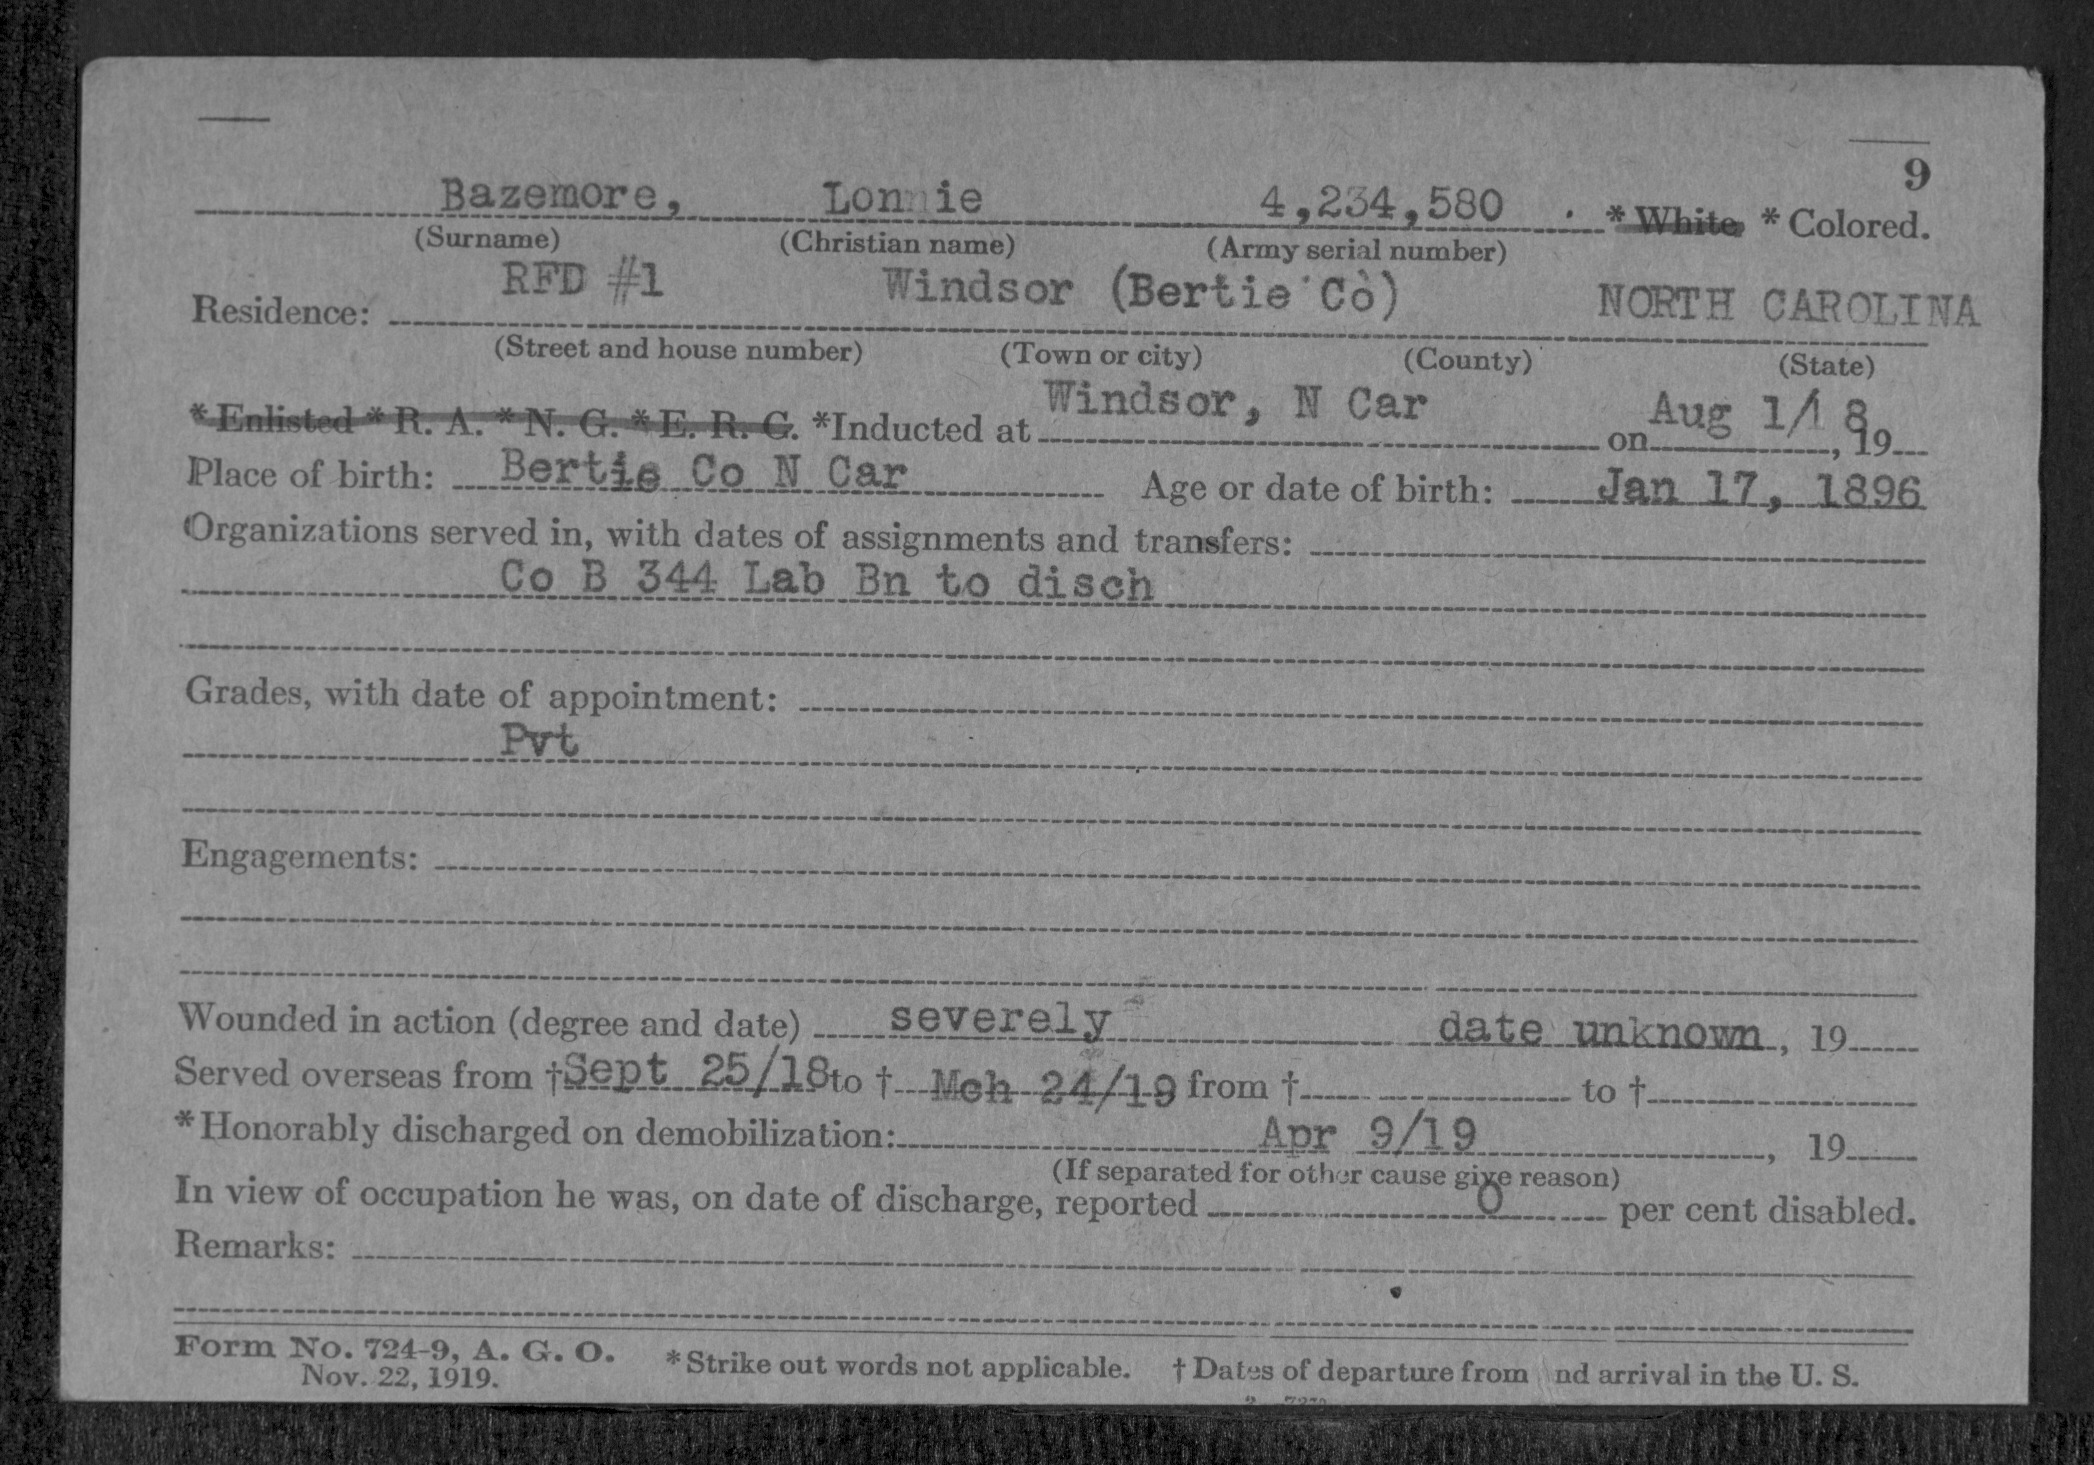 9
Bazemore, Lonnie 4,234,580 . * White * Colored.
(Surname) (Christian name) (Army serial number)
RFD #1 Windsor (Bertie Co) NORTH CAROLINA
Residence:
(Street and house number) (Town or city) (County) (State)
*Enlisted *R. A. *N. G. *E. R. C. *Inducted at Windsor, N Car on Aug 1/18, 19
Place of birth: Bertie Co N Car Age or date of birth: Jan 17, 1896
Organizations served in, with dates of assignments and transfers:
Co B 344 Lab Bn to disch
Grades, with date of appointment:
Pvt
Engagements:
Wounded in action (degree and date) severely date unknown, 19
Served overseas from †Sept 25/18 to † Mch 24/19 from † to †
*Honorably discharged on demobilization: Apr 9/19, 19
(If separated for other cause give reason)
In view of occupation he was, on date of discharge, reported 0 per cent disabled.
Remarks:
Form No. 724-9, A. G. O. *Strike out words not applicable. †Dates of departure from nd arrival in the U. S.
Nov. 22, 1919.